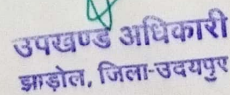 उपखण्ड अधिकारी
झाड़ोल, जिला-उदयपुर